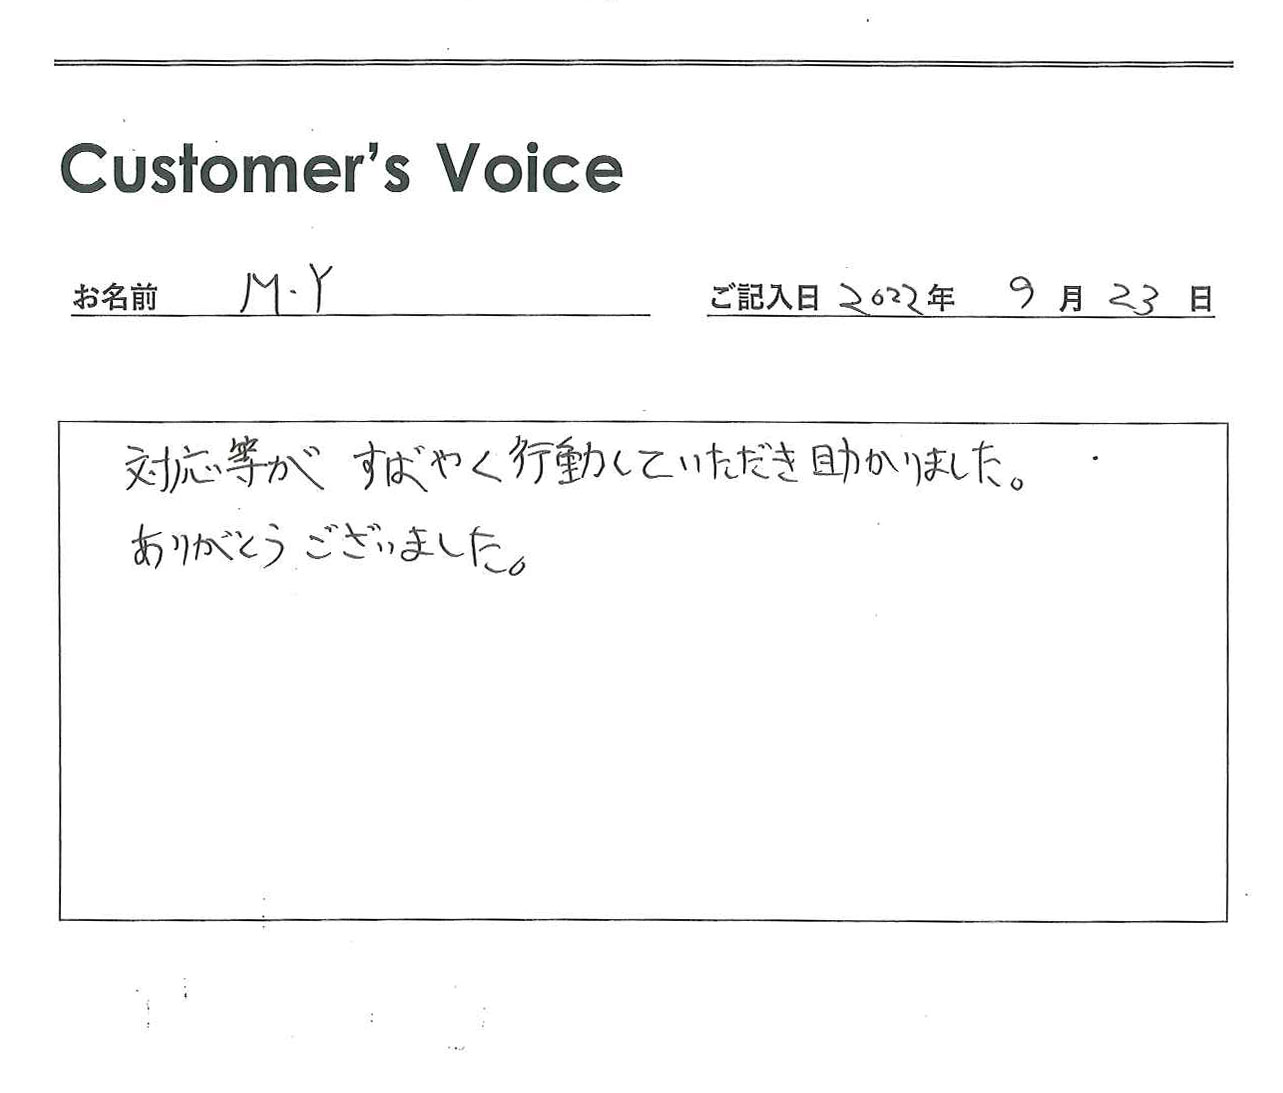 Customer's Voice
お名前 M.Y ご記入日 2022年 9月 23日
対応等が すばやく行動していただき助かりました。
ありがとうございました。